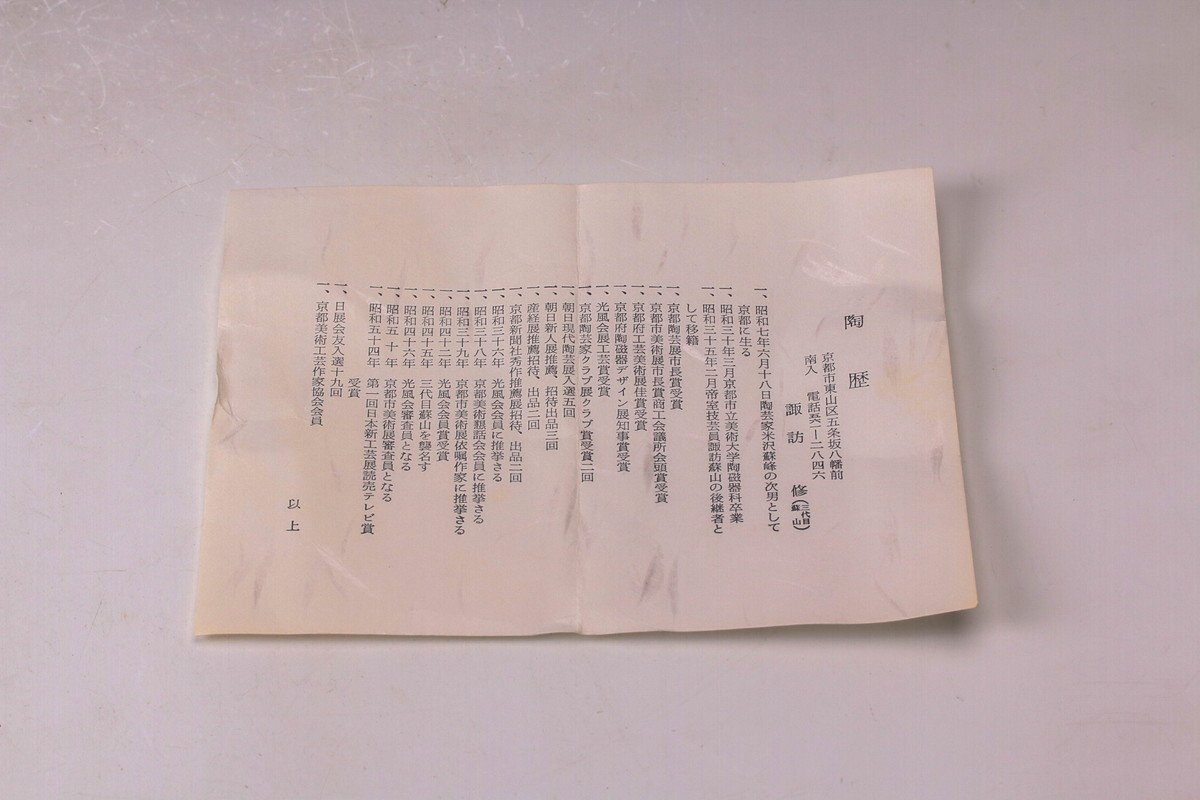 陶歴
京都市東山区五条坂八幡前
南入 電話五一―二八四六
諏訪 修(三代目蘇山)
一、昭和七年六月十八日陶芸家米沢蘇峰の次男として
京都に生る
一、昭和三十年三月京都市立美術大学陶磁器科卒業
一、昭和三十五年二月帝室技芸員諏訪蘇山の後継者と
して移籍
一、京都陶芸展市長賞受賞
一、京都市美術展市長賞商工会議所会頭賞受賞
一、京都府工芸美術展佳賞受賞
一、京都府陶磁器デザイン展知事賞受賞
一、光風会展工芸賞受賞
一、京都陶芸家クラブ展クラブ賞受賞二回
一、朝日現代陶芸展入選五回
一、朝日新人展推薦、招待出品三回
一、産経展推薦招待、出品二回
一、京都新聞社秀作推薦展招待、出品二回
一、昭和三十六年 光風会会員に推挙さる
一、昭和三十八年 京都美術懇話会会員に推挙さる
一、昭和三十九年 京都市美術展依嘱作家に推挙さる
一、昭和四十二年 光風会会員賞受賞
一、昭和四十五年 三代目蘇山を襲名す
一、昭和四十六年 光風会審査員となる
一、昭和五十年 京都市美術展審査員となる
一、昭和五十四年 第一回日本新工芸展読売テレビ賞
受賞
一、日展会友入選十九回
一、京都美術工芸作家協会会員
以上